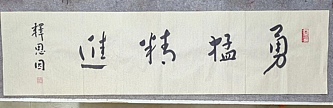 勇猛精進
釋恩因